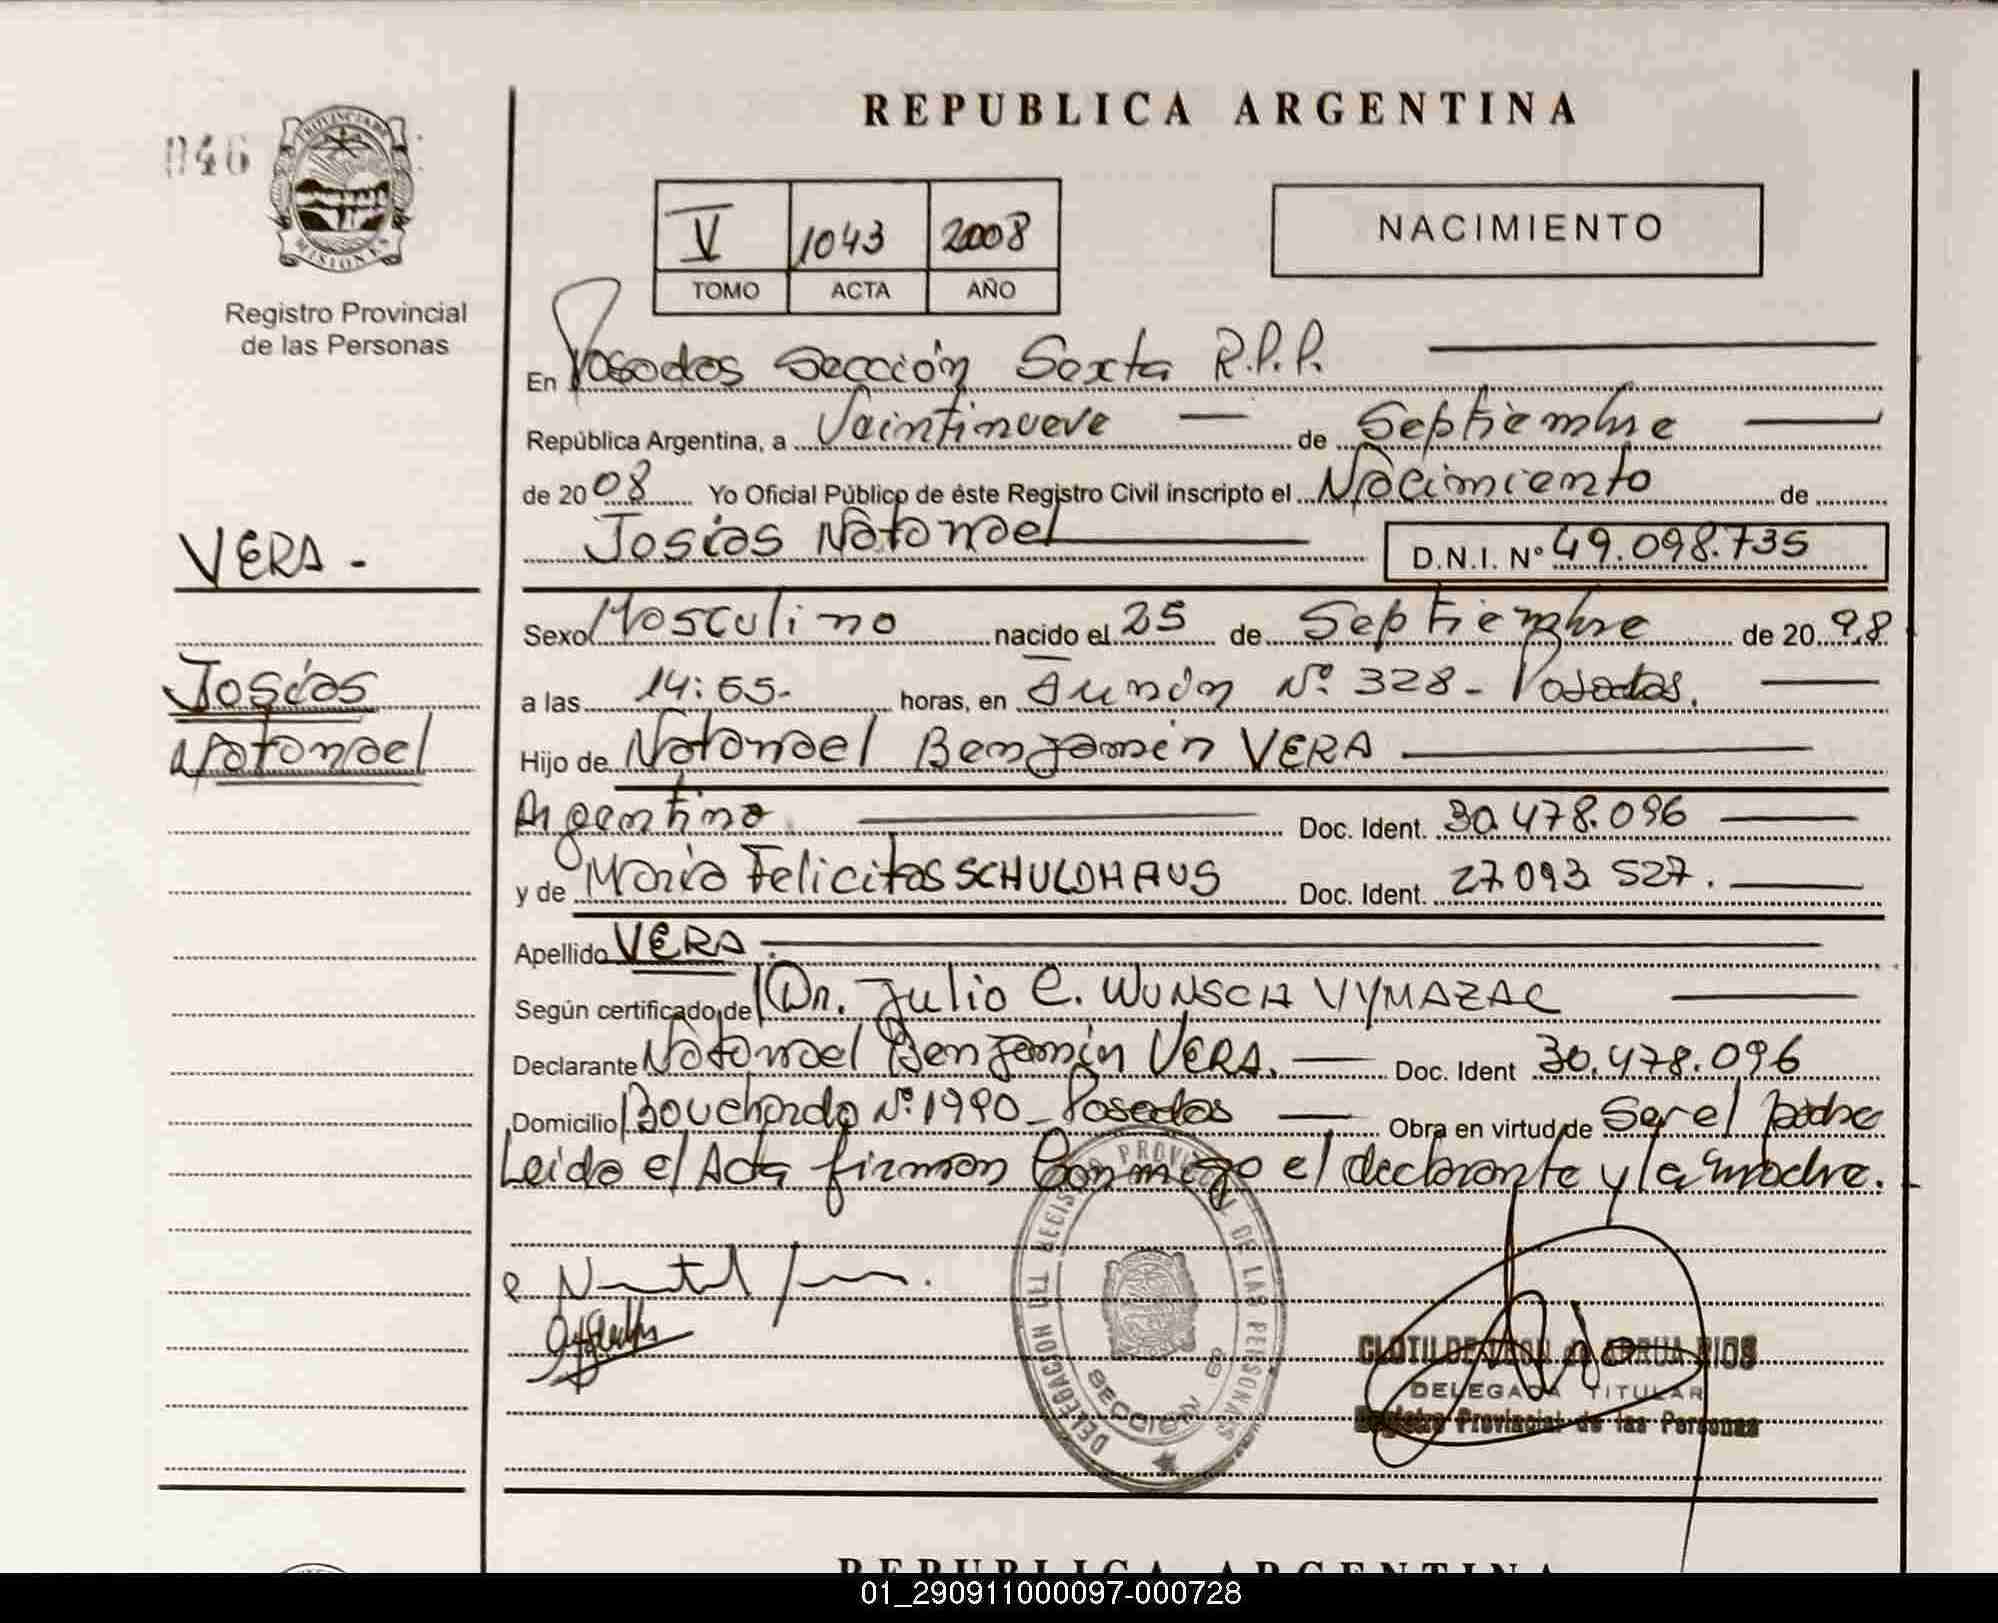 REPUBLICA ARGENTINA
046
PROVINCIA DE
MISIONES
Registro Provincial
de las Personas
V 1043 2008
TOMO ACTA AÑO
NACIMIENTO
En Posadas Sección Sexta R.P.P.
República Argentina, a Veintinueve de Septiembre
de 20 08 Yo Oficial Público de éste Registro Civil inscripto el Nacimiento de
Josías Natanael D.N.I. Nº 49.098.735
VERA -
Josías
Natanael
Sexo Masculino nacido el 25 de Septiembre de 20 98
a las 14:55.- horas, en Junín Nº 328 - Posadas.
Hijo de Natanael Benjamín VERA
Argentina Doc. Ident. 30.478.096
y de María Felicitas SCHULDHAUS Doc. Ident. 27.093.527.
Apellido VERA.
Según certificado de Dr. Julio C. WUNSCH VYMAZAL
Declarante Natanael Benjamín VERA. Doc. Ident 30.478.096
Domicilio Bouchardo Nº 1990 - Posadas Obra en virtud de Ser el padre
Leido el Acta firman Conmigo el declarante y la madre.
DELEGACION DEL REGISTRO PROVINCIAL DE LAS PERSONAS
SECCION 6º
CLOTILDE de ARRUA RIOS
DELEGADA TITULAR
Registro Provincial de las Personas
REPUBLICA ARGENTINA
01_290911000097-000728